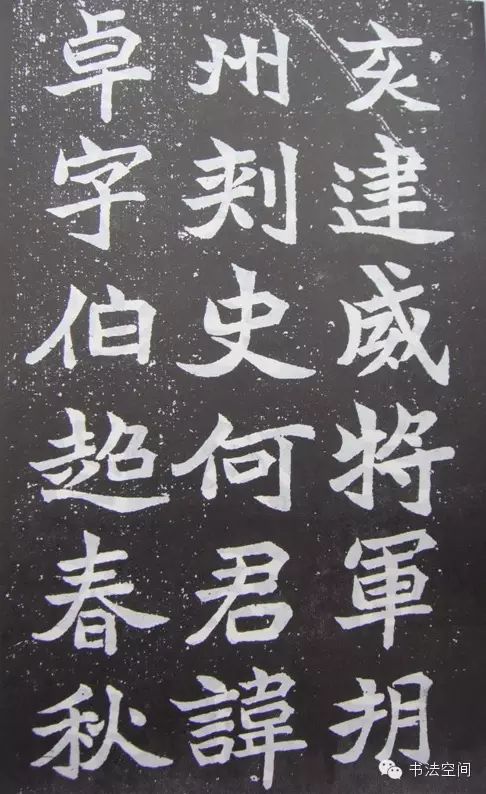 亥建威將軍朔
州刺史何君諱
卓字伯超春秋
书法空间